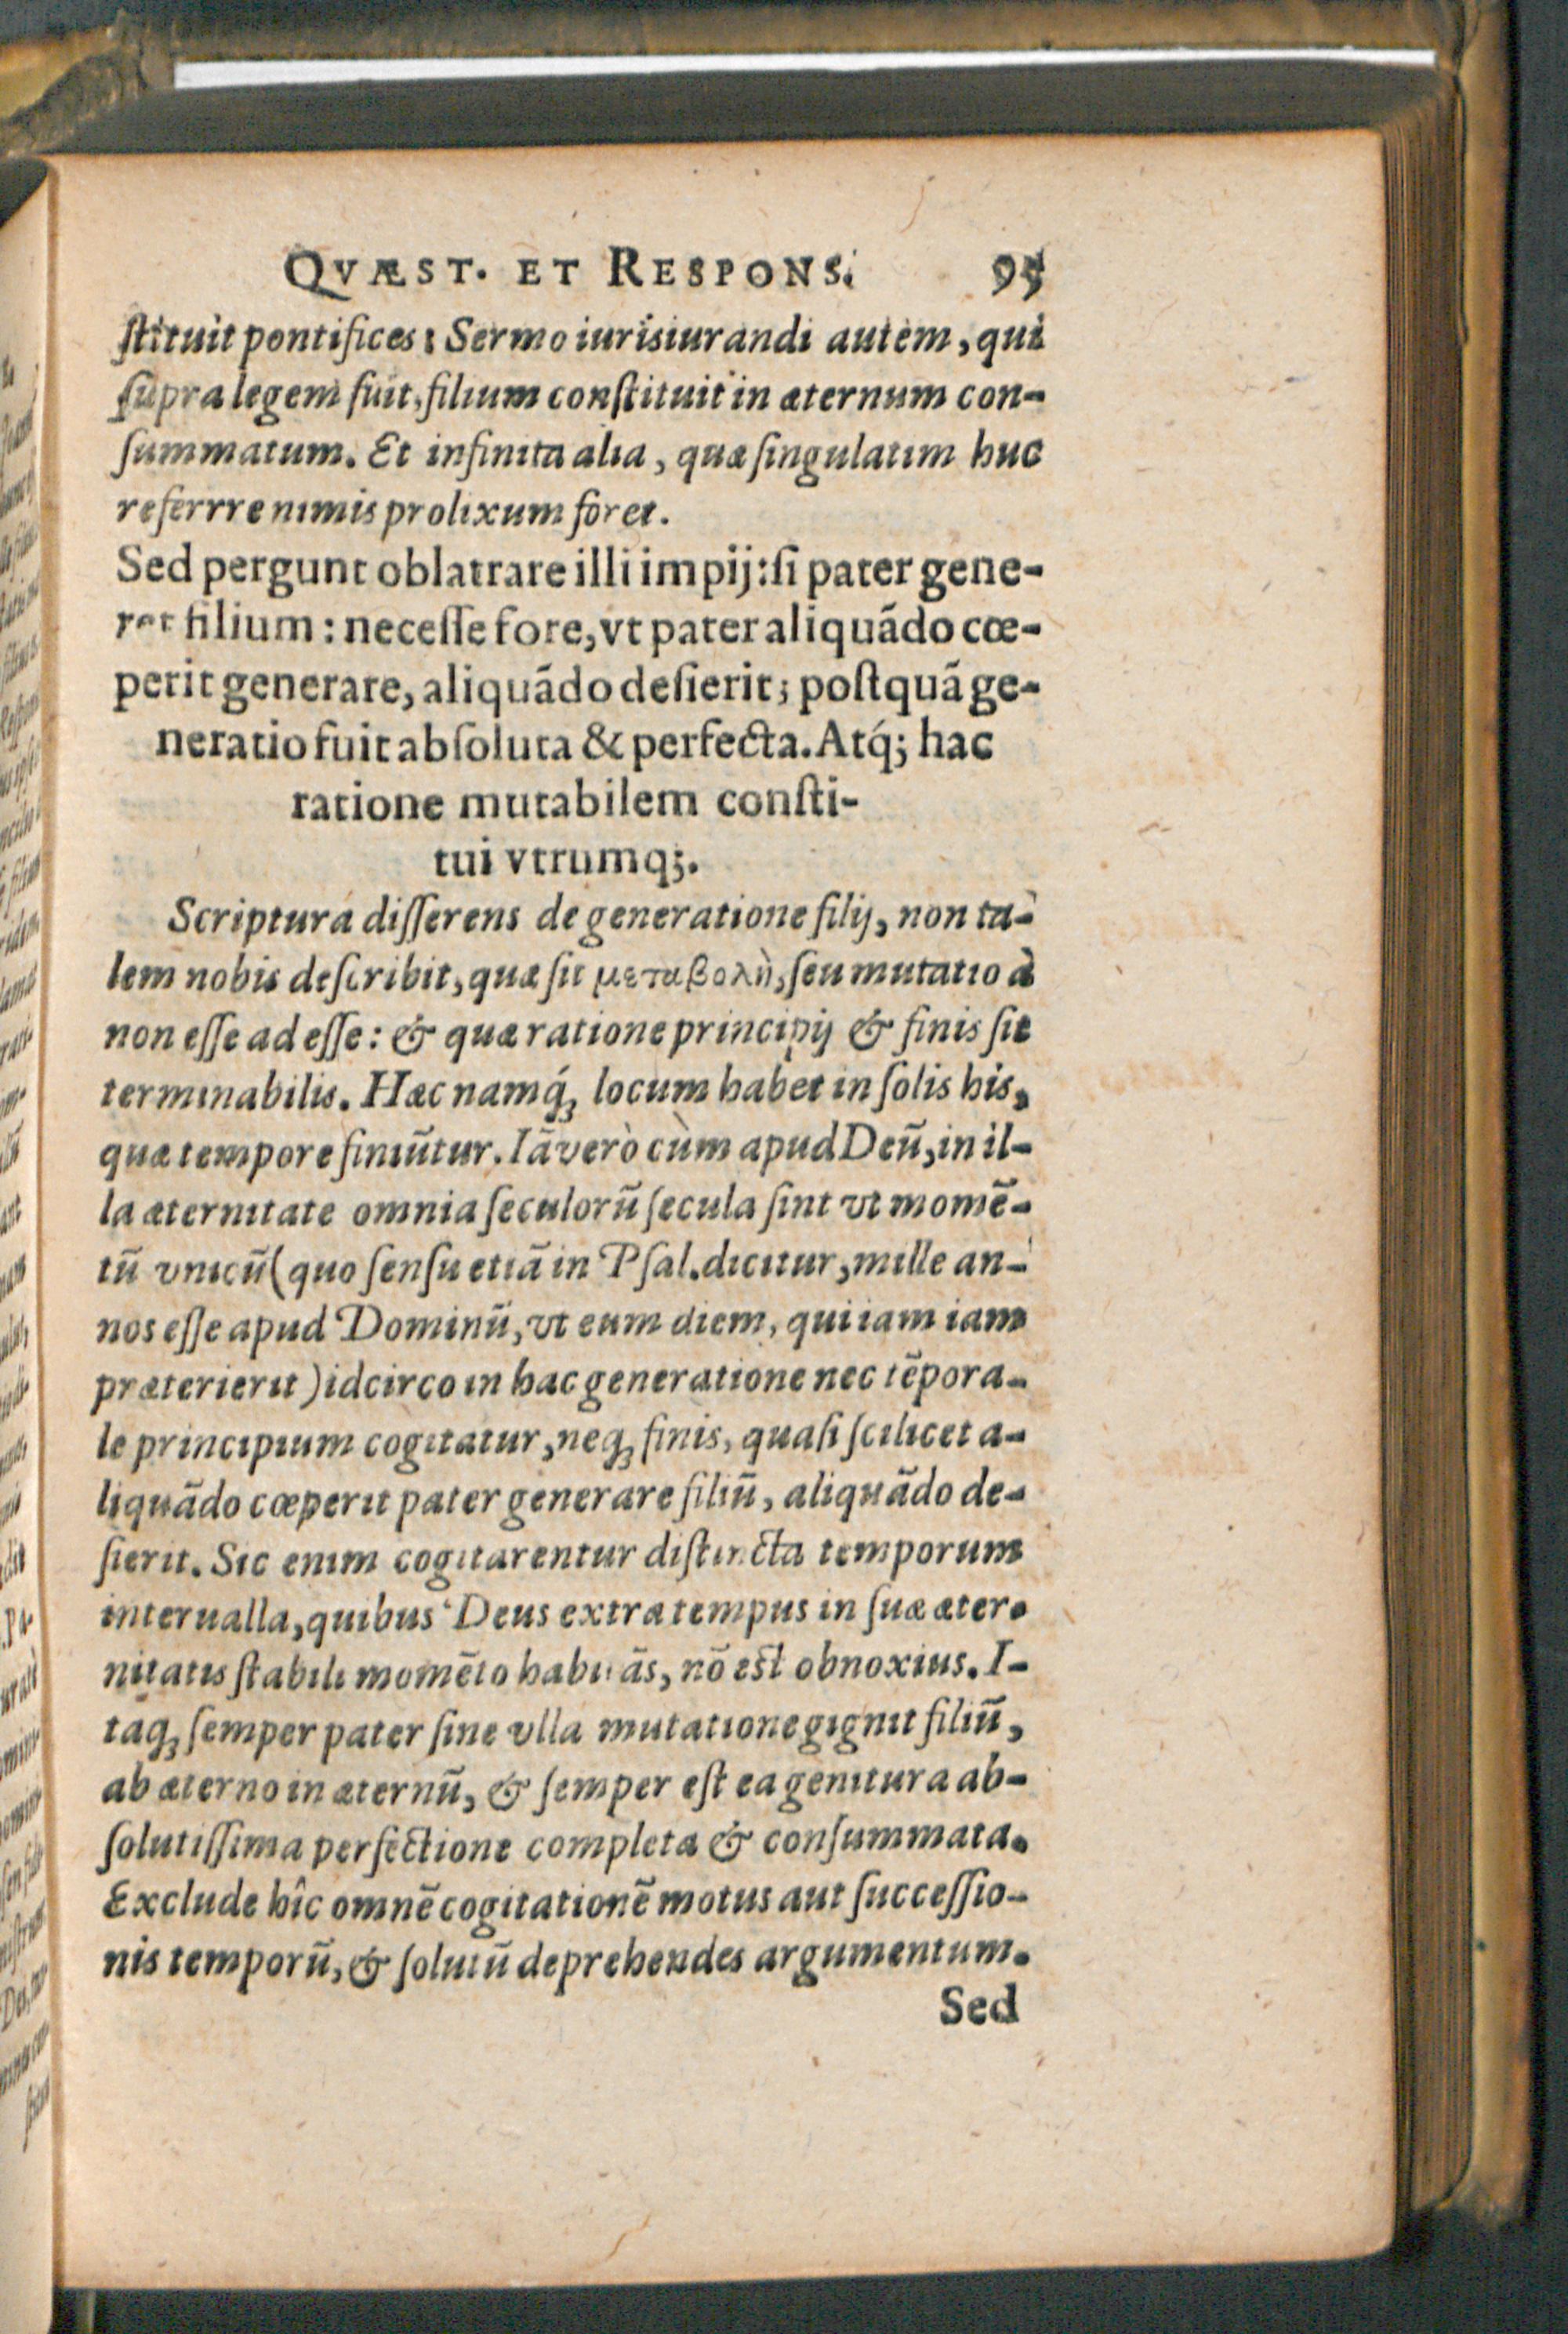 QVÆST. ET RESPONS. 95
ſtituit pontifices: Sermo iurisiurandi autem, qui
ſupra legem fuit, filium conſtituit in æternum con-
ſummatum. Et infinita alia, quæ ſingulatim huc
referrre nimis prolixum foret.
Sed pergunt oblatrare illi impij: ſi pater gene-
ret filium: neceſſe fore, vt pater aliquãdo cœ-
perit generare, aliquãdo deſierit; poſtquã ge-
neratio fuit abſoluta & perfecta. Atq́; hac
ratione mutabilem conſti-
tui vtrumq;.
Scriptura diſſerens de generatione filij, non ta-
lem nobis deſcribit, quæ ſit μεταβολὴ, ſeu mutatio à
non eſſe ad eſſe: & quæ ratione principij & finis ſit
terminabilis. Hæc namq́; locum habet in ſolis his,
quæ tempore finiũtur. Iã verò cùm apud Deũ, in il-
la æternitate omnia ſeculorũ ſecula ſint vt momẽ-
tũ vnicũ (quo ſenſu etiã in Pſal. dicitur, mille an-
nos eſſe apud Dominũ, vt eum diem, qui iam iam
præterierit) idcirco in hac generatione nec tẽpora-
le principium cogitatur, neq; finis, quaſi ſcilicet a-
liquãdo cœperit pater generare filiũ, aliquãdo de-
ſierit. Sic enim cogitarentur diſtincta temporum
interualla, quibus Deus extra tempus in ſuæ æter-
nitatis ſtabili momẽto habitãs, nõ eſt obnoxius. I-
taq; ſemper pater ſine vlla mutatione gignit filiũ,
ab æterno in æternũ, & ſemper eſt ea genitura ab-
ſolutiſſima perfectione completa & conſummata.
Exclude hîc omnẽ cogitationẽ motus aut ſucceſſio-
nis temporũ, & ſolutũ deprehendes argumentum.
Sed